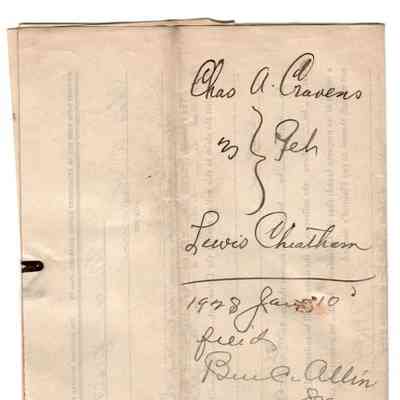 Chas A. Cravens
vs } Peh
Lewis Cheatham
1928 Jan 10
filed
Ben C. Allin